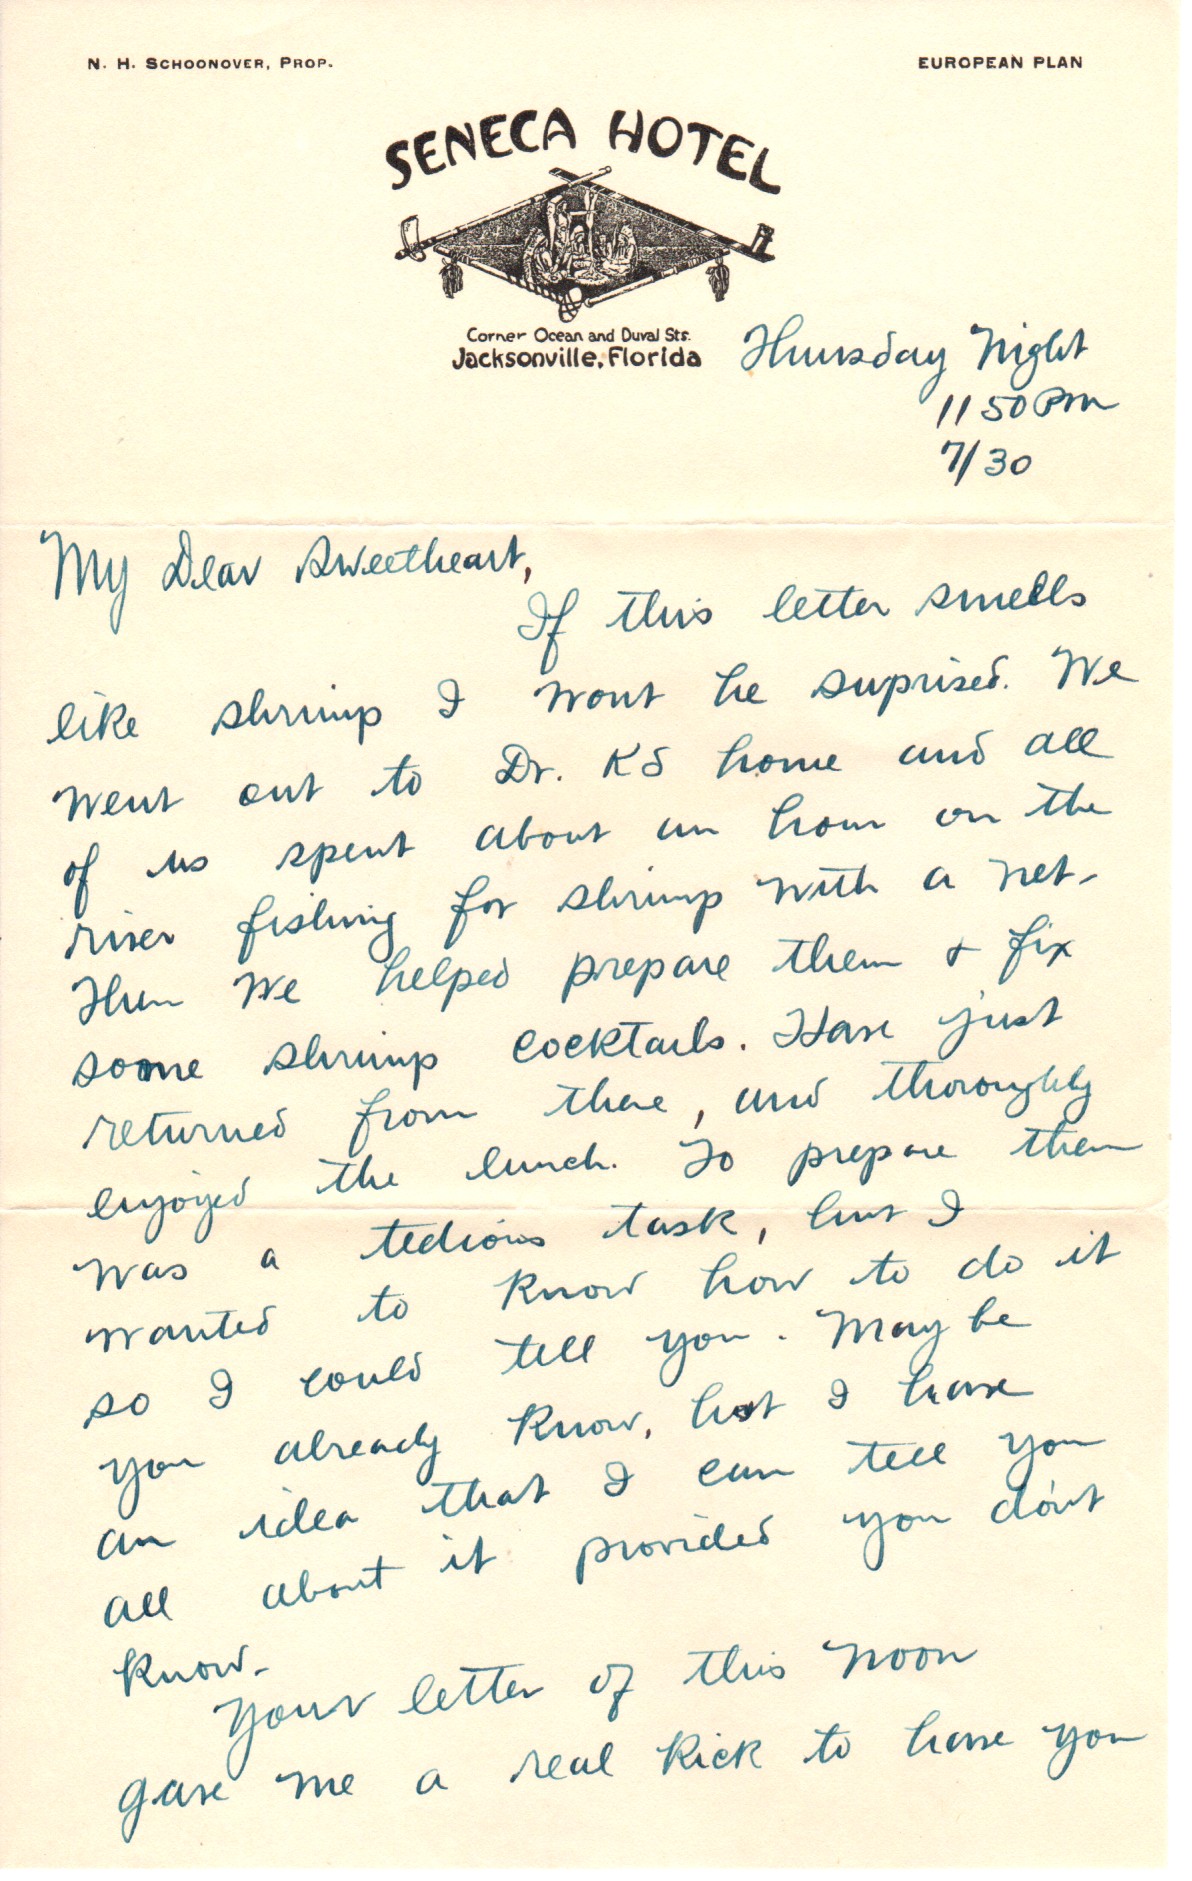 N. H. SCHOONOVER, PROP.
EUROPEAN PLAN
SENECA HOTEL
Corner Ocean and Duval Sts.
Jacksonville, Florida
Thursday Night
11 50 PM
7/30
My Dear Sweetheart,
If this letter smells
like shrimp I wont be suprised. We
went out to Dr. KS home and all
of us spent about an hour on the
river fishing for shrimp with a net-
Then we helped prepare them + fix
soome shrimp cocktails. Have just
returned from there, and thoroughly
enjoyed the lunch. To prepare them
was a tedious task, but I
wanted to know how to do it
so I could tell you. May be
you already know, but I have
an idea that I can tell you
all about it provided you don't
know-
Your letter of this noon
gave me a real kick to have you